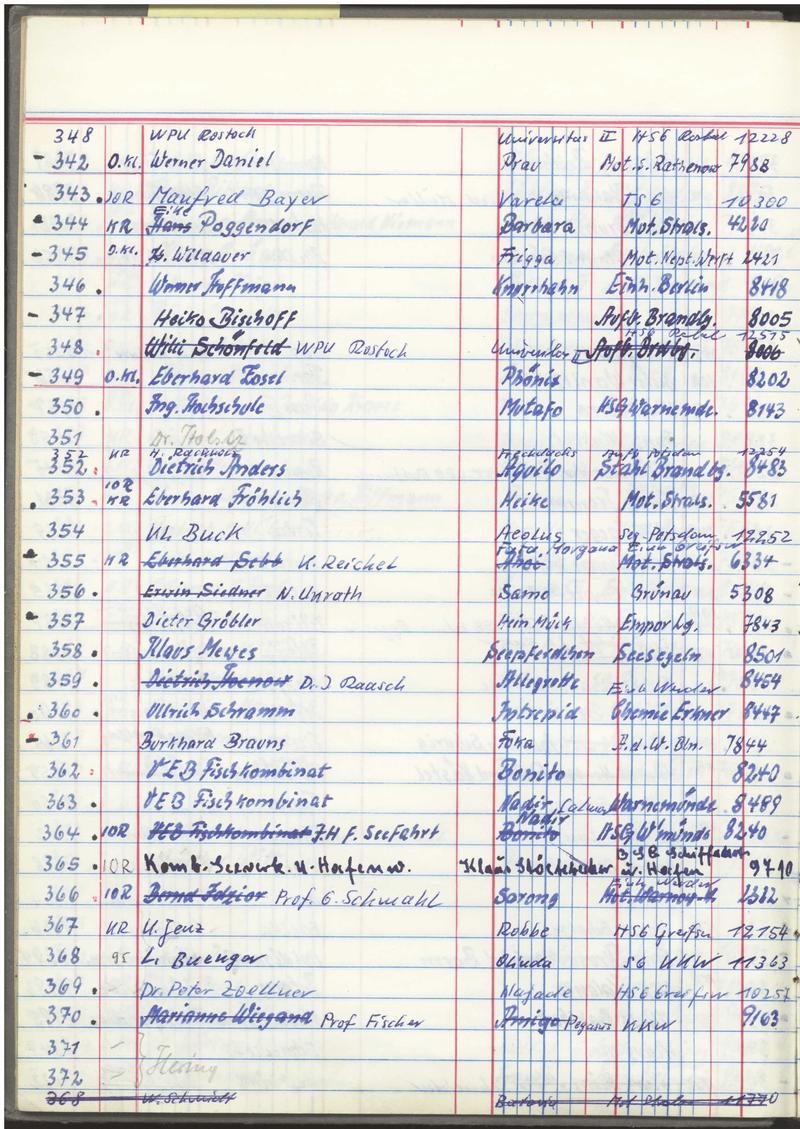 348 WPU Rostock Universitas II HSG Rostock 12228
- 342 O.Kl. Werner Daniel Prau Mot.s. Rathenow 7988
343. IOR Manfred Bayer Varela TSG 10300
Eike
- 344 KR Hans Poggendorf Barbara Mot. Strals. 4220
- 345 O.Kl. Wildauer Frigga Mot. Nept. Werft 2421
346. Werner Hoffmann Knurrhahn Einh. Berlin 8418
- 347 Heiko Bischoff Aufb. Brandbg. 8005
12575
348. Willi Schönfeld WPU Rostock II Aufb. Brdbg. 8006
- 349 O.Kl. Eberhard Zosel Phönix 8202
350. Ing. Hochschule Mutafo HSG Warnemde. 8143
351 Dr. Holstz
352 KR H. 12254
352. Dietrich Anders Aquilo Stahl Brandbg. 8483
IOR
353. KR Eberhard Fröhlich Heike Mot. Strals. 5581
354 Kl. Buck Aeolus Seg. Potsdam 12252
Fata Morgana Einh. Greifsw
- 355 KR Eberhard Sebb K. Reichel Mot. Strals. 6334
356. Erwin Siedner N. Unrath Samo Grünau 5308
- 357 Dieter Gröbler Hein Mück Empor Lg. 7843
358. Klaus Mewes Seepferdchen Seesegeln 8501
359. Dr. J Raasch Allegrette Einh Werder 8454
. 360. Ullrich Schramm Intrepid Chemie Erkner 8447
- 361 Burkhard Brauns Foka A.d.W. Bln. 7844
362. VEB Fischkombinat Bonito 8240
363. VEB Fischkombinat Nadir Warnemünde 8489
Nadir
364. IOR VEB Fischkombinat I.H f. Seefahrt Bonito HSG W'münde 8240
BSG Schiffahrt
365. IOR Komb. Seeverk. u. Hafenw. Klaus Störtebeker u. Hafen 9710
Einh Werder
366. IOR Bernd Prof. G. Schmahl Sarong 2382
367 KR U. Jenz Robbe HSG Greifsw 12154
368 95 L. Buenger Olinda SG KKW 11363
369. Dr. Peter Zoellner Najade HSG Greifsw 10257
370. Marianne Wiegand Prof Fischer Amigo Pegasus KKW 9163
371
372
368 W. Schmidt Batavia Mot 11770